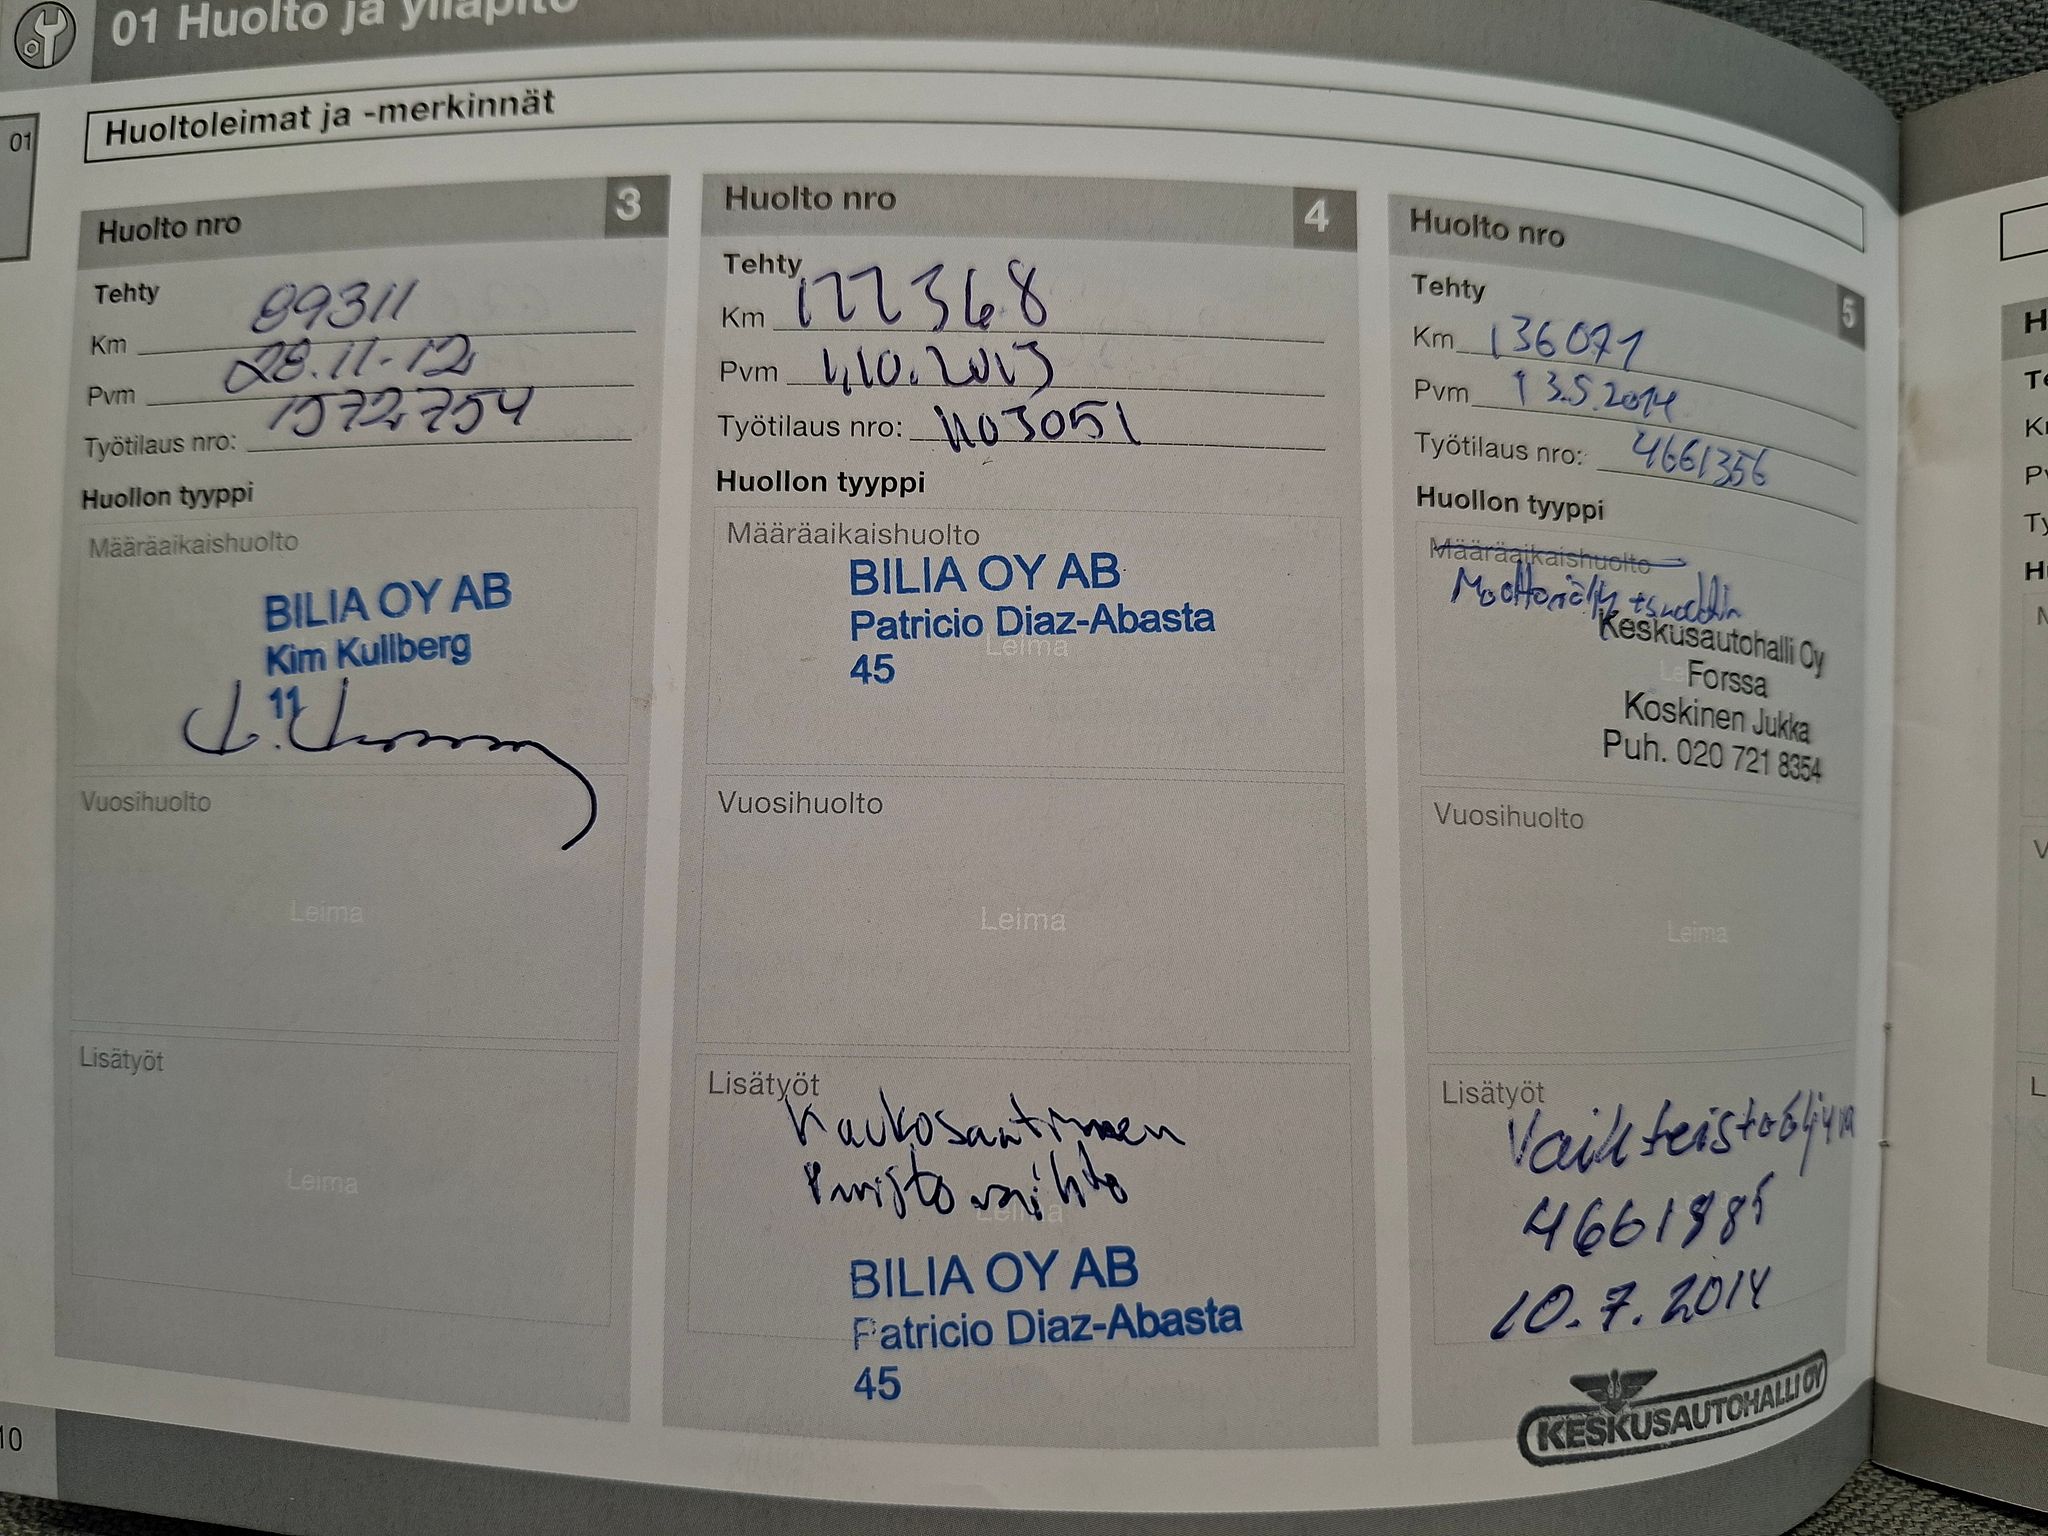 01 Huolto ja ylläpito
01
Huoltoleimat ja -merkinnät
Huolto nro 3
Tehty
Km 89311
Pvm 28.11-12
Työtilaus nro: 1572754
Huollon tyyppi
Määräaikaishuolto
BILIA OY AB
Kim Kullberg
11
Vuosihuolto
Leima
Lisätyöt
Leima
10
Huolto nro 4
Tehty
Km 122368
Pvm 1.10.2013
Työtilaus nro: 1103051
Huollon tyyppi
Määräaikaishuolto
BILIA OY AB
Patricio Diaz-Abasta
Leima
45
Vuosihuolto
Leima
Lisätyöt
Kaukosaatimen
Paristo vaihto
Leima
BILIA OY AB
Patricio Diaz-Abasta
45
Huolto nro 5
Tehty
Km 136071
Pvm 13.5.2014
Työtilaus nro: 4661356
Huollon tyyppi
Määräaikaishuolto
Keskusautohalli Oy
Forssa
Koskinen Jukka
Puh. 020 721 8354
Vuosihuolto
Leima
Lisätyöt
Vaihteistoöljyn
4661985
10.7.2014
KESKUSAUTOHALLI OY